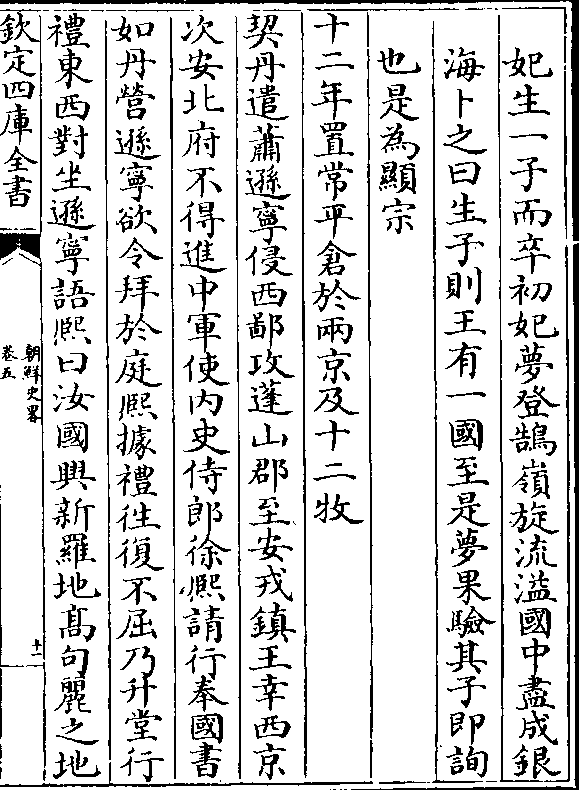 妃生一子而卒初妃夢登鵠嶺旋流溢國中盡成銀
海卜之曰生子則王有一國至是夢果驗其子即詢
也是為顯宗
十二年置常平倉於兩京及十二牧
契丹遣蕭遜寧侵西鄙攻蓬山郡至安戎鎮王幸西京
次安北府不得進中軍使内史侍郎徐熙請行奉國書
如丹營遜寧欲令拜於庭熙據禮徃復不屈乃升堂行
禮東西對坐遜寧語熙曰汝國興新羅地髙句麗之地
欽定四庫全書
朝鮮史畧
卷五
十一